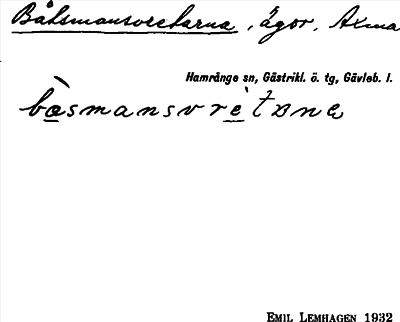 Båtsmansvretarna, ägor, Axma
Hamrånge sn, Gästrikl. ö. tg, Gävleb. l.
bò̲smansvrè̲tɒnɑ
EMIL LEMHAGEN 1932